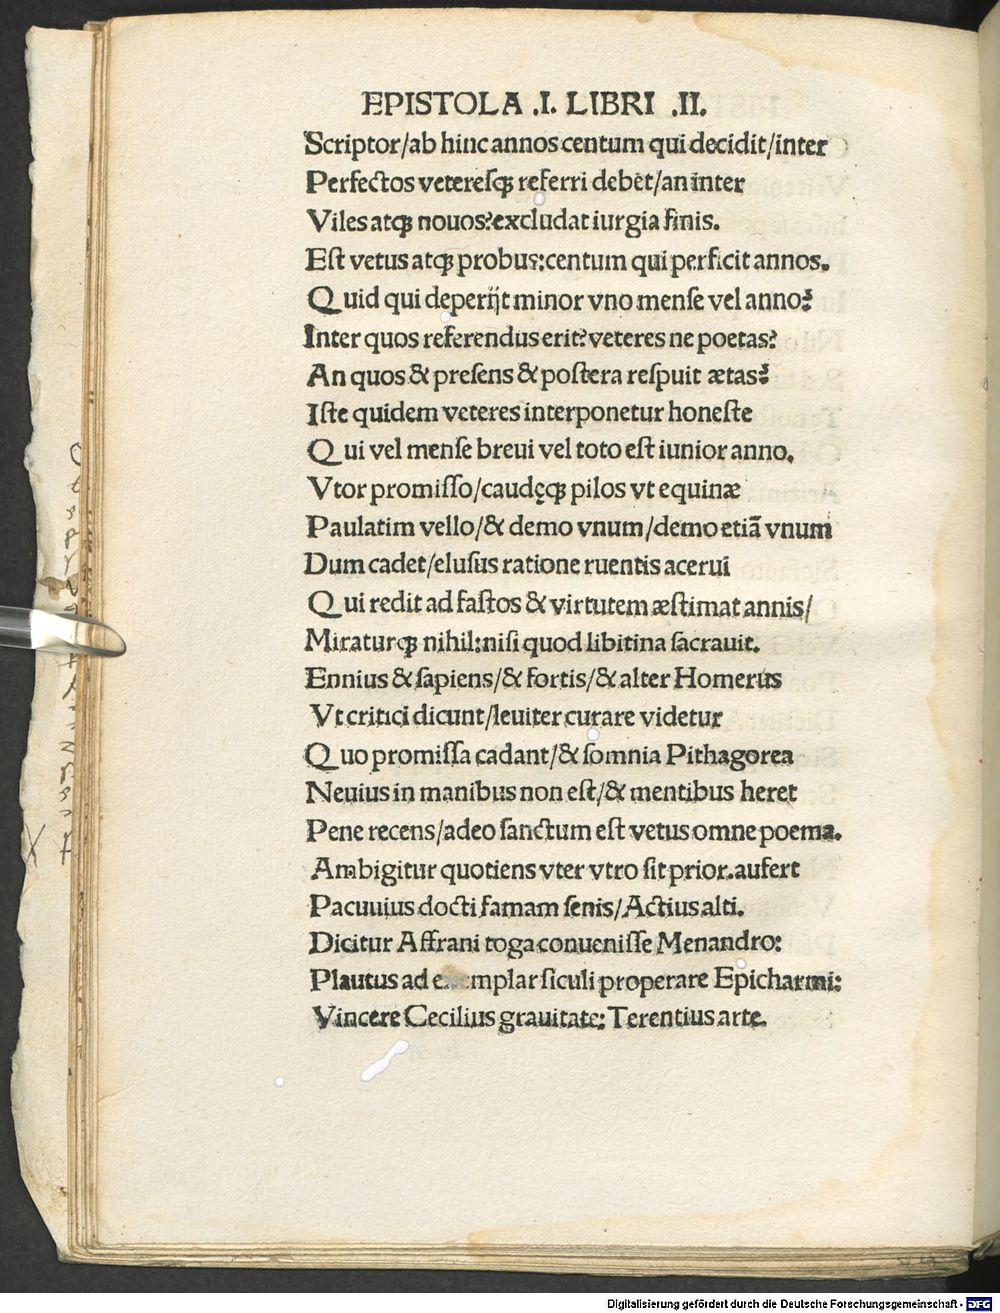 EPISTOLA .I. LIBRI .II.
Scriptor/ab hinc annos centum qui decidit/inter
Perfectos vetereſqꝫ referri debet/an inter
Viles atqꝫ nouos?excludat iurgia finis.
Eſt vetus atqꝫ probus:centum qui perficit annos.
Quid qui deperijt minor vno menſe vel anno?
Inter quos referendus erit?veteres ne poetas?
An quos & preſens & poſtera reſpuit ætas?
Iſte quidem veteres interponetur honeſte
Qui vel menſe breui vel toto eſt iunior anno.
Vtor promiſſo/caudęqꝫ pilos vt equinæ
Paulatim vello/& demo vnum/demo etiā vnum
Dum cadet/eluſus ratione ruentis acerui
Qui redit ad faſtos & virtutem æſtimat annis/
Miraturqꝫ nihil:niſi quod libitina ſacrauit.
Ennius & ſapiens/& fortis/& alter Homerus
Vt critici dicunt/leuiter curare videtur
Quo promiſſa cadant/& ſomnia Pithagorea
Neuius in manibus non eſt/& mentibus heret
Pene recens/adeo ſanctum eſt vetus omne poema.
Ambigitur quotiens vter vtro ſit prior.aufert
Pacuuius docti famam ſenis/Actius alti.
Dicitur Affrani toga conueniſſe Menandro:
Plautus ad exemplar ſiculi properare Epicharmi:
Vincere Cecilius grauitate:Terentius arte.
Digitalisierung gefördert durch die Deutsche Forschungsgemeinschaft - DFG